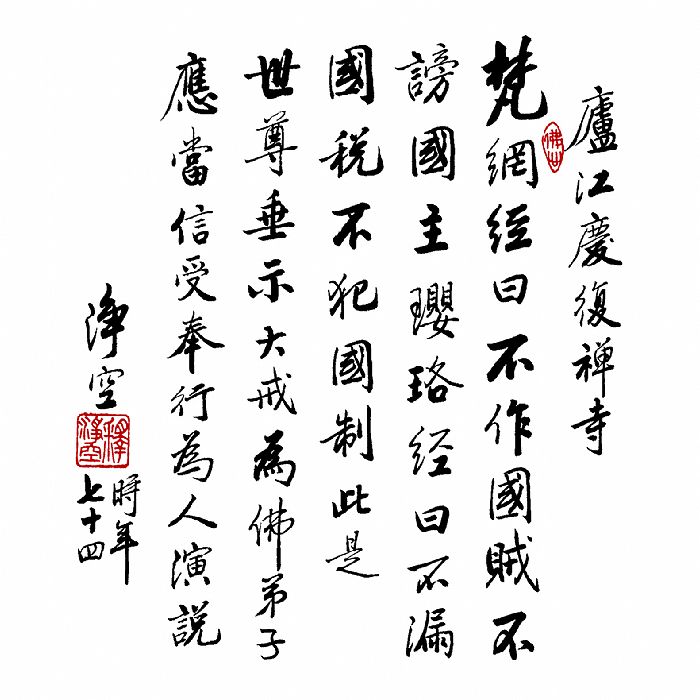 廬江慶復禅寺
佛世
梵網經曰不作國賊不
謗國主瓔珞經曰不漏
國税不犯國制此是
世尊垂示大戒為佛弟子
應當信受奉行為人演説
淨空
釋淨空
時年
七十四